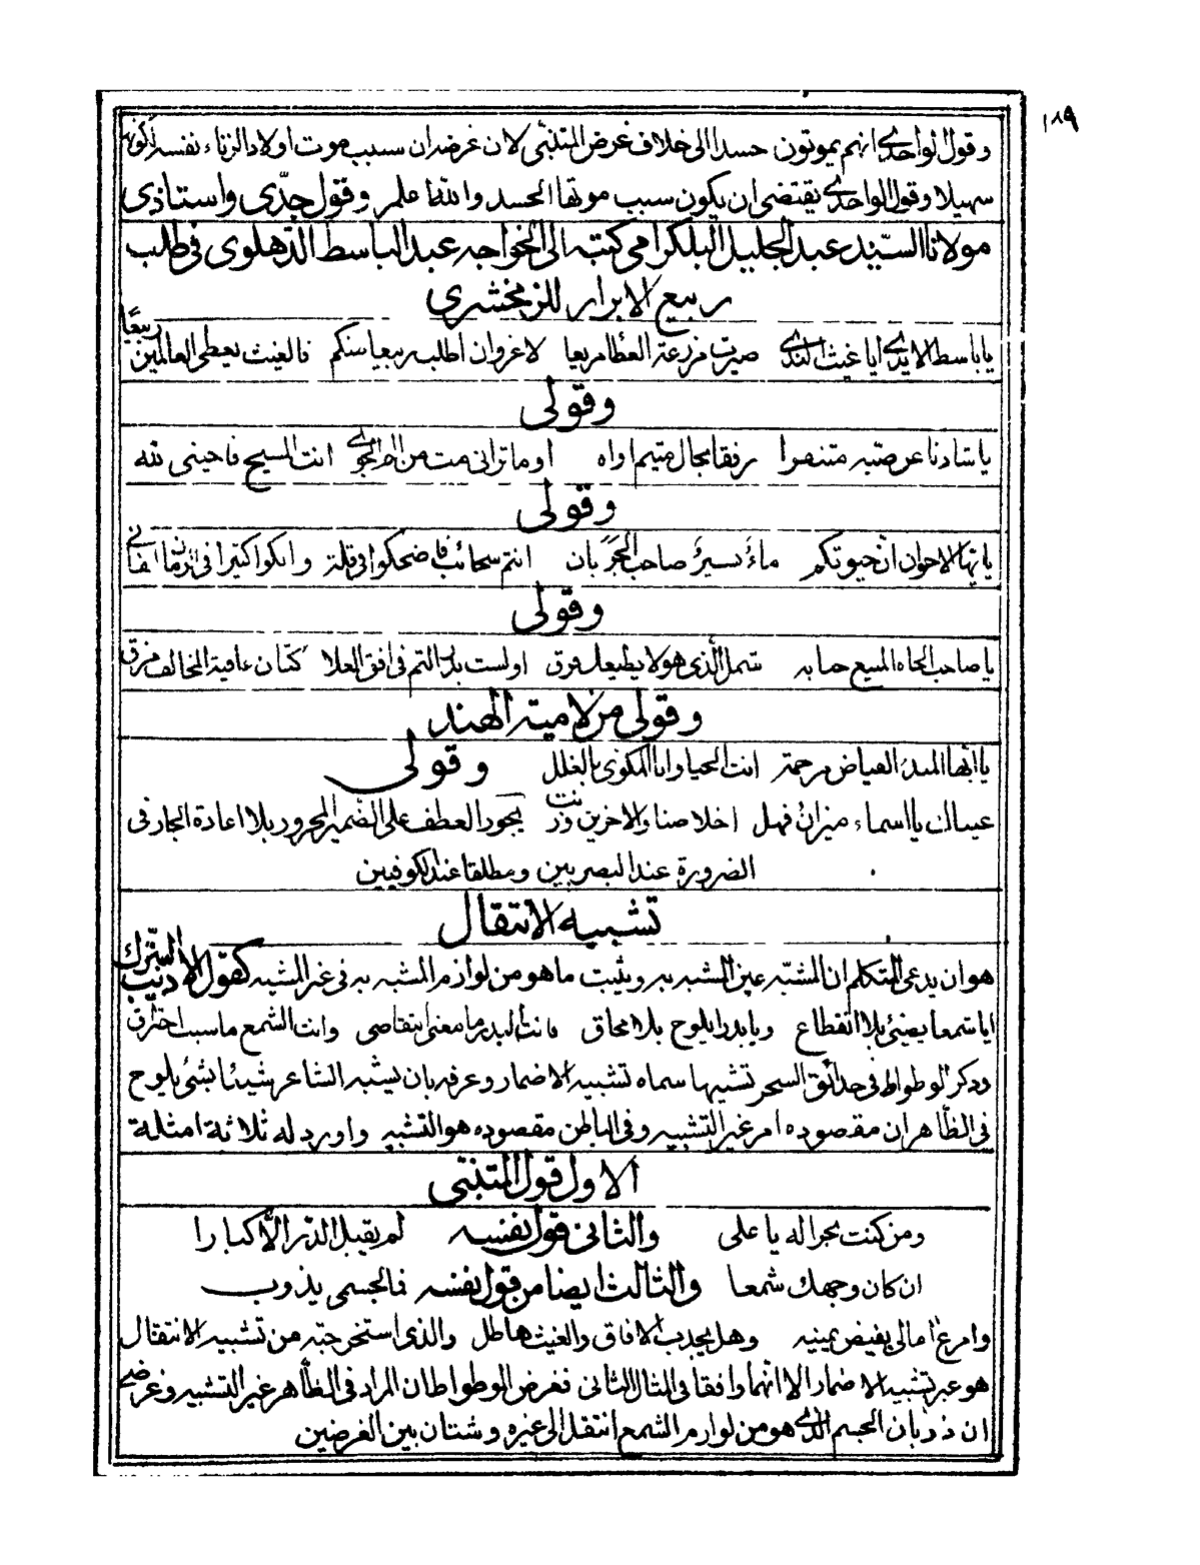 ١٨٩
وقول الواحدي انهم يموتون حسدا الى خلاف غرض المتنبي لان غرضه ان سبب موت اولاد الزناء نفسه لكونه
سهيلا وقول الواحدي يقتضى ان يكون سبب موتها الحسد والله اعلم وقول جدّى واستاذى
مولانا السيّد عبد الجليل البلكرامى كتبه الى الخواجه عبد الباسط الدهلوى فى طلب
ربيع الابرار للزمخشرى
يا باسط الايدي ايا غيث الندي صيرت مزرعة العطاء مريعا لا غرو ان اطلب ربيعا منكم فالغيث يعطى العالمين ربيعًا
وقولى
يا شادنا عن صبه متنفرا رفقا بحال متيم اواه اوما ترانى مت من الم الجوي انت المسيح فاحينى لله
وقولى
يا ايها الاخوان ان حيوتكم ماء يسير صاحب الجريان انتم سحائب فاضحكوا فى قلة وابكوا كثيرا فى الزمان الفانى
وقولى
يا صاحب الجاه المنيع جنابه شمل الذى هو لا يطيعك فرق اولست بدر التم فى افق العلا كتان عافية المخالف مزق
وقولى من لامية الهند
يا ايها المبدء الفياض مرحمة انت الحيا وانا المكوى بالغلل وقولى
عيناك يا اسماء ميزان فهل اخلاصنا والاخرين وزنت يجوز العطف على الضمير المجرور بلا اعادة الجار فى
الضرورة عند البصريين ومطلقا عند الكوفيين
تشبيه الانتقال
هو ان يدعى المتكلم ان المشبّه عين المشبه به ويثبت ما هو من لوازم المشبه به فى غير المشبه كقول الاديب الترك
ايا شمعا يضئ بلا انقطاع ويا بدرا يلوح بلا محاق فانت البدر ما معنى انتقاصى وانت الشمع ما سبب احتراق
وذكر الوطواط فى حدائق السحر تشبيها سماه تشبيه الاضمار وعرفه بان يشبه الشاعر شيئا بشئ يلوح
فى الظاهر ان مقصوده امر غير التشبيه وفى الباطن مقصوده هو التشبيه واورد له ثلاثة امثلة
الاول قول المتنبّى
ومن كنت بحرا له يا على والثانى قول نفسه لم يقبل الدر الا كبارا
ان كان وجهك شمعا والثالث ايضا من قول نفسه فما لجسمى يذوب
وامرع امالى بفيض يمينه وهل يجدب الافاق والغيث هاطل والذى استخرجته من تشبيه الانتقال
هو غير تشبيه الاضمار الا انهما وافقا فى المثال الثانى فغرض الوطواط ان المراد فى الظاهر غير التشبيه وغرضى
ان ذوبان الجسم الذي هو من لوازم الشمع انتقل الى غيره وشتان بين الغرضين